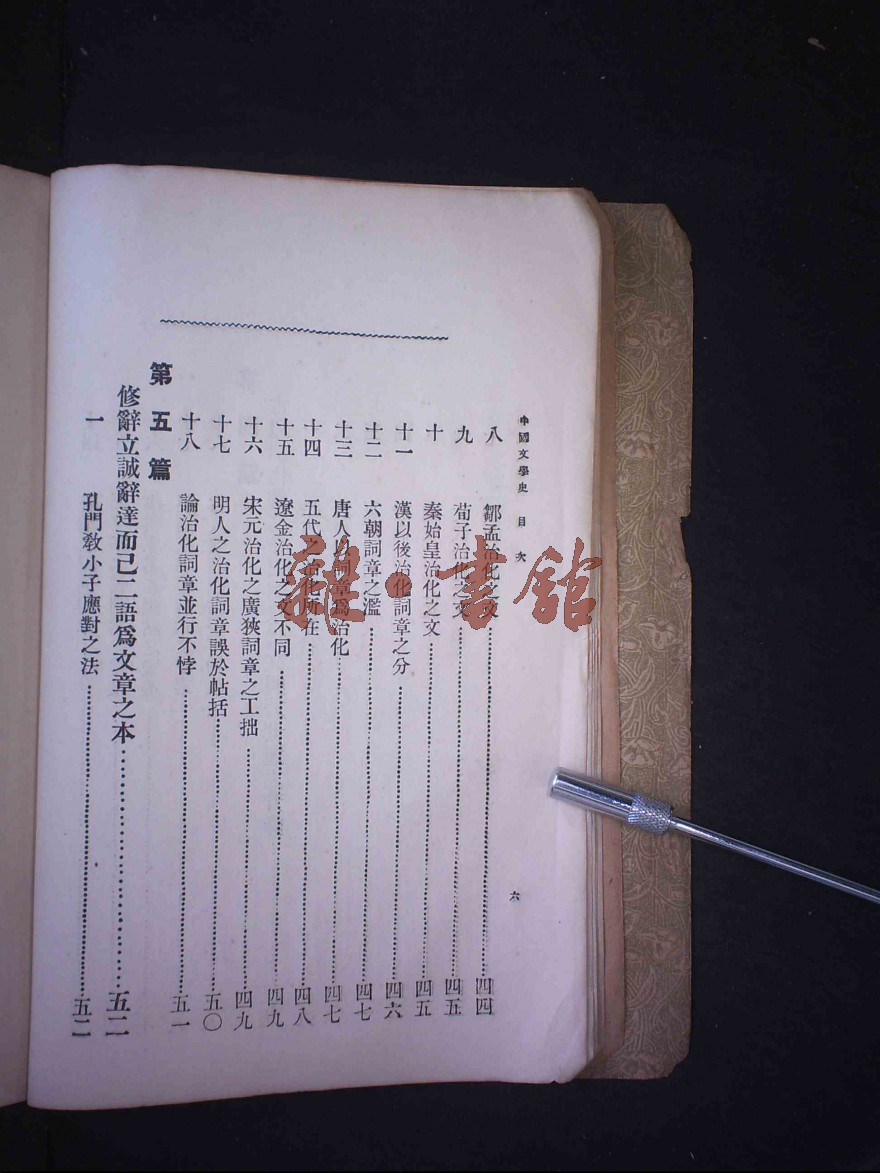 中國文學史 目次 六
八 鄒孟治化之文 四四
九 荀子治化之文 四五
十 秦始皇治化之文 四五
十一 漢以後治化詞章之分 四六
十二 六朝詞章之濫 四七
十三 唐人以詞章爲治化 四七
十四 五代之治化所在 四八
十五 遼金治化之文不同 四九
十六 宋元治化之廣狹詞章之工拙 四九
十七 明人之治化詞章誤於帖括 五〇
十八 論治化詞章並行不悖 五一
第五篇
修辭立誠辭達而已二語爲文章之本 五二
一 孔門敎小子應對之法 五二
雜·書館